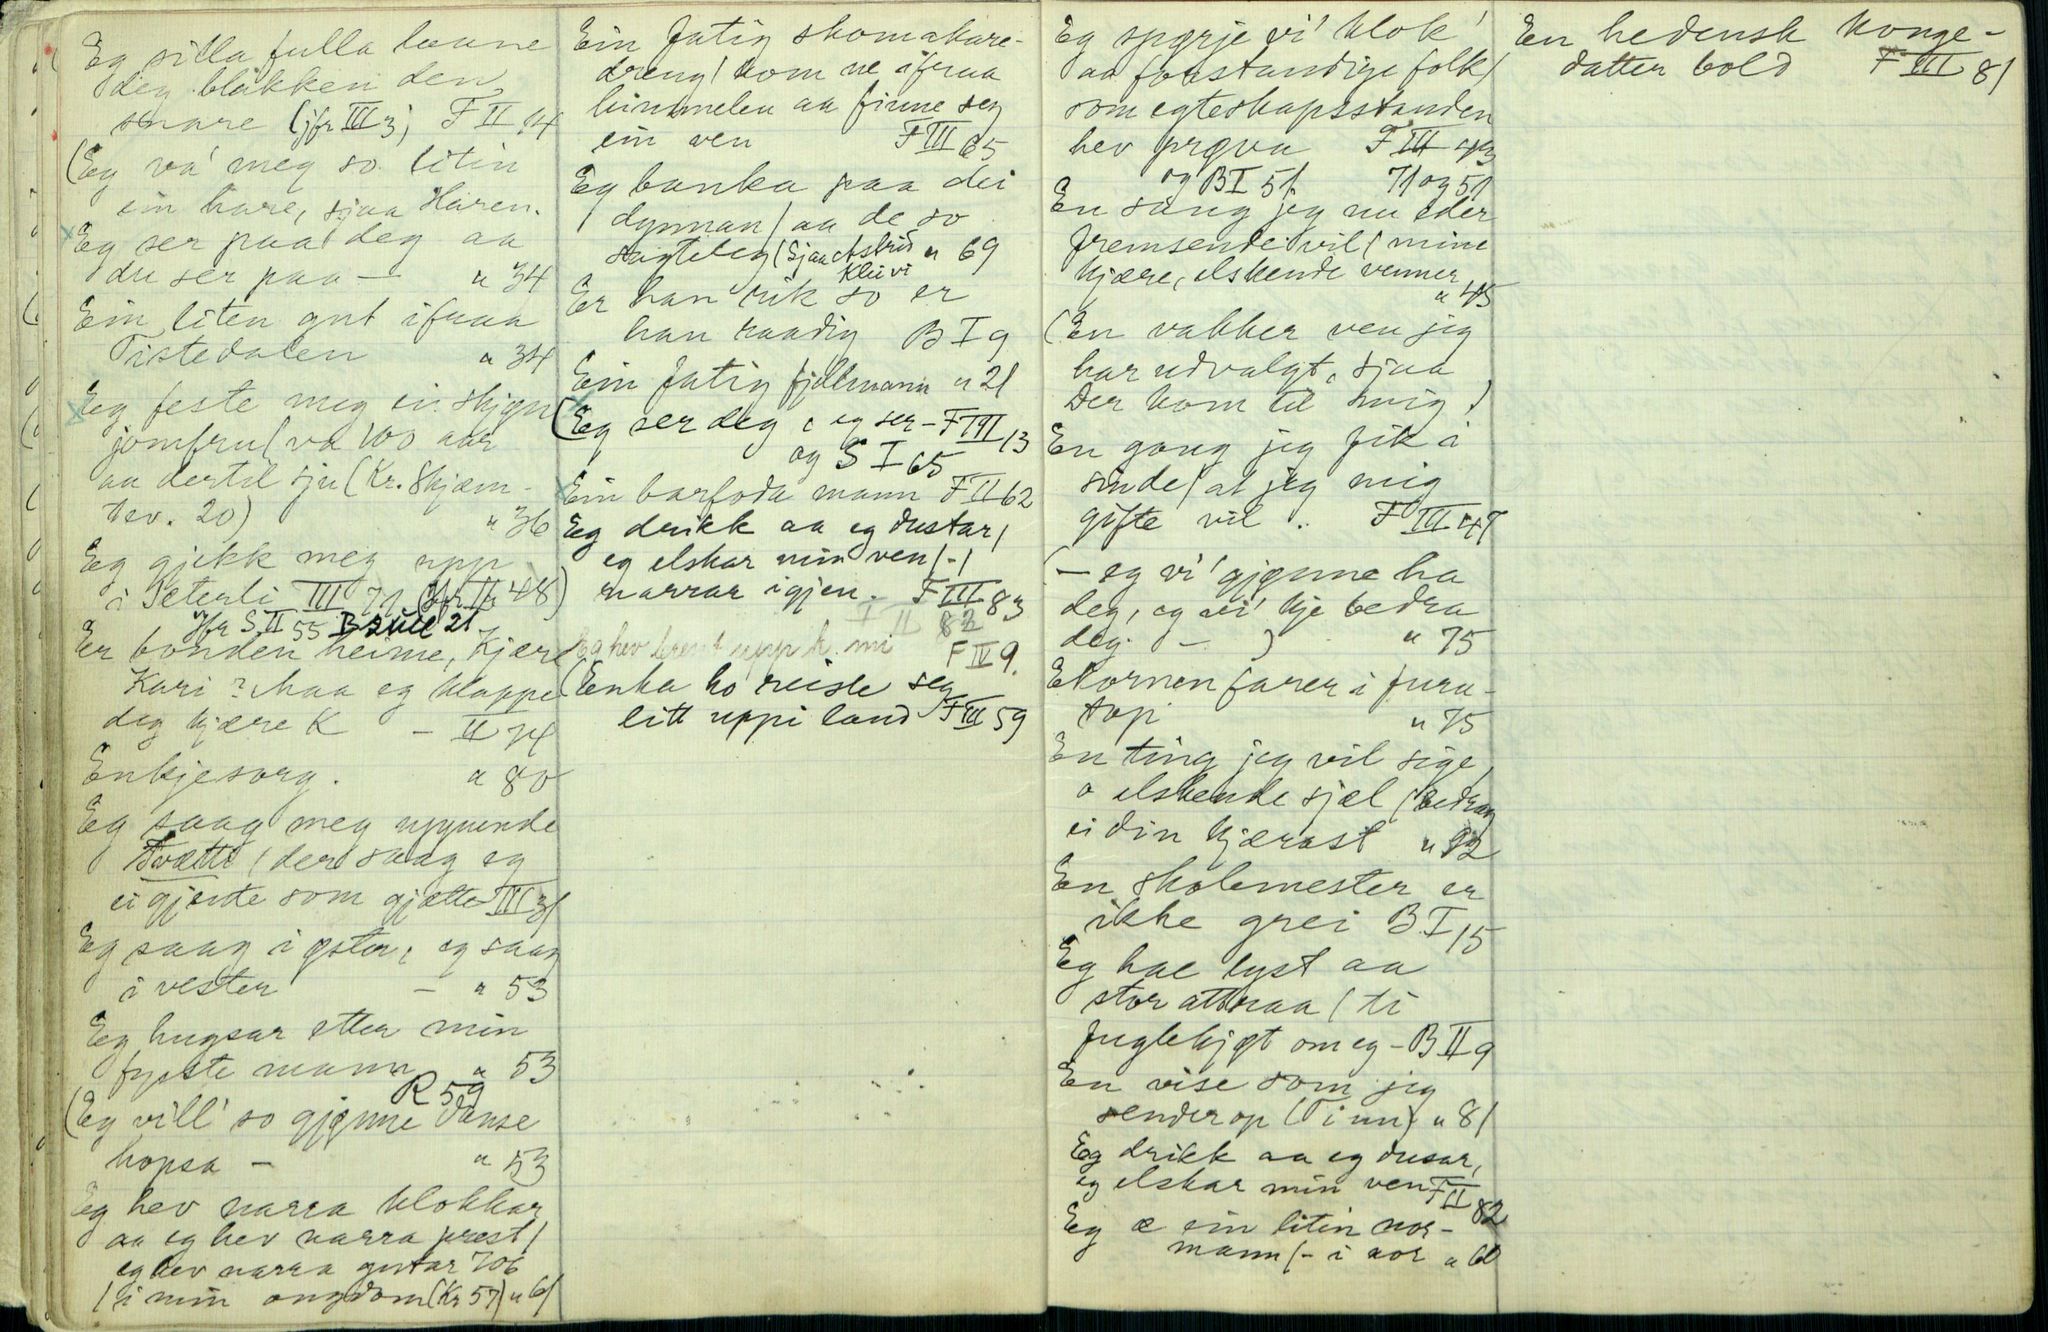 Eg silla fulla laane
deg blakken den
snare (jfr III 3) F II 14
(Eg va' meg so litin
ein hare, sjaa Haren.
Eg ser paa deg aa
du ser paa — " 34
Ein liten gut ifraa
Tistedalen " 34
Eg feste meg ei skjøn
jomfru / va 100 aar
aa dertil sju (Kr. Skjæm-
tev. 20) " 36
Eg gjekk meg upp
i Seterli III 71 (jfr II 48)
Jfr S II 55
Er bonden heime, Kjære
Kari? maa eg klappe
deg kjære K — II 74
Enkjesorg. " 80
Eg saag meg uppunde
Tvætti / der saag eg
ei gjente som gjætte III 31
Eg saag i øster, eg saag
i vester — " 53
Eg hugsar etter min
fyrste mann " 53
R 59
(Eg vill' so gjønne danse
hopsa — " 53
Eg hev narra klokkar
aa eg hev narra prest /
eg hev narra gutar 706
/ i min ungdom (Kr 57) " 61
Ein fatig skomakare-
dreng / kom ne ifraa
himmelen aa finne seg
ein ven F III 65
Eg banka paa dei
dynnan / aa de so
sagteleg (Sjaa Astrid " 69
Kluvi
Er han rik so er
han raadig B I 9
Ein fatig fjellmann " 21
(Eg ser deg, eg ser — F III 13
og S I 65
Ein barfoda mann F II 62
Eg drikk aa eg dustar /
eg elskar min ven / - /
narrar igjen. F III 83
I II 82
Eg hev brent upp k. mi F IV 9.
(Enka ho reiste seg
litt uppi land F III 59
Eg spørje vi' klok'
aa forstandige folk /
som egteskapsstanden
hev prøva F III 43
og B I 51. 71 og 51
En sang jeg nu eder
fremsende vil / mine
kjære, elskende venner
" 45
(En vakker ven jeg
har udvalgt, sjaa
Der kom til mig)
En gang jeg fik i
sinde / at jeg mig
gifte vil .. F III 47
(— eg vi' gjønne ha
deg, eg vi' kje bedra
deg. — ) " 75
Ekornen farer i furu-
top " 75
En ting jeg vil sige,
o elskende sjæl / bedrag
ei din kjærast " 92
En skolemester er
ikke grei B I 15
Eg hae lyst aa
stor attraa / ti
fuglekjøt om eg — B II 9
En vise som jeg
sender op (Tinn) " 81
Eg drikk aa eg dusar,
eg elskar min ven F II
82
Eg æ ein litin nor-
mann / - i aor " 60
En hedensk konge-
datter bold F III 81